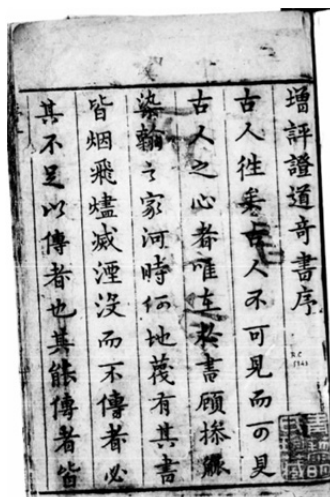 增評證道奇書序
古人徃矣古人不可見而可見
古人之心者唯在於書顧操觚
染翰之家何時何地蔑有其書
皆烟飛燼滅湮沒而不傳者必
其不足以傳者也其能傳者皆